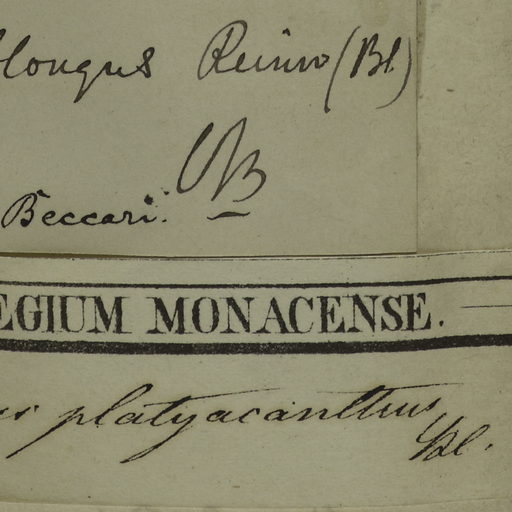 blongus Reinw (Bl)
B
Beccari.
EGIUM MONACENSE.
us platyacanthus
Bl.